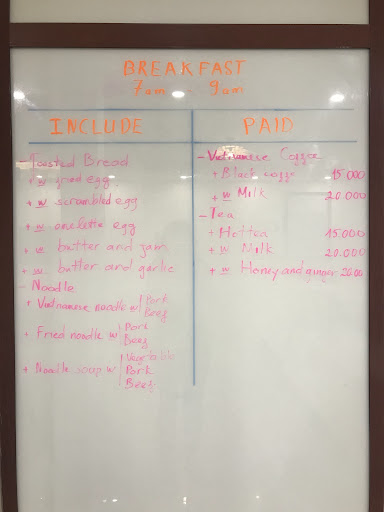 BREAKFAST
7am - 9am
INCLUDE
- Toasted Bread
+ w fried egg
+ w scrambled egg
+ w omelette egg
+ w butter and jam
+ w butter and garlic
- Noodle
+ Vietnamese noodle w/ Pork
Beef
+ Fried noodle w/ Pork
Beef
+ Noodle soup w/ Vegetable
Pork
Beef
PAID
- Vietnamese Coffee
+ Black coffe 15.000
+ w Milk 20.000
- Tea
+ Hot tea 15.000
+ w Milk 20.000
+ w Honey and ginger